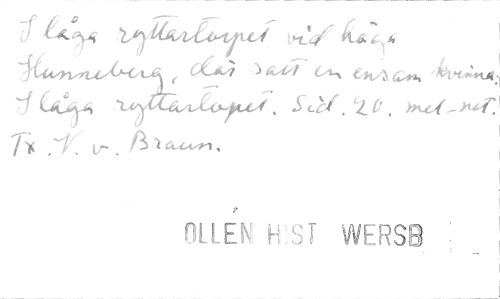 I låga ryttartorpet vid höga
Hunneberg, där satt en ensam kvinna.
I låga ryttartorpet. Sid. 20. mel-not.
Tx. V. v. Braun.
OLLÉN HIST WERSB